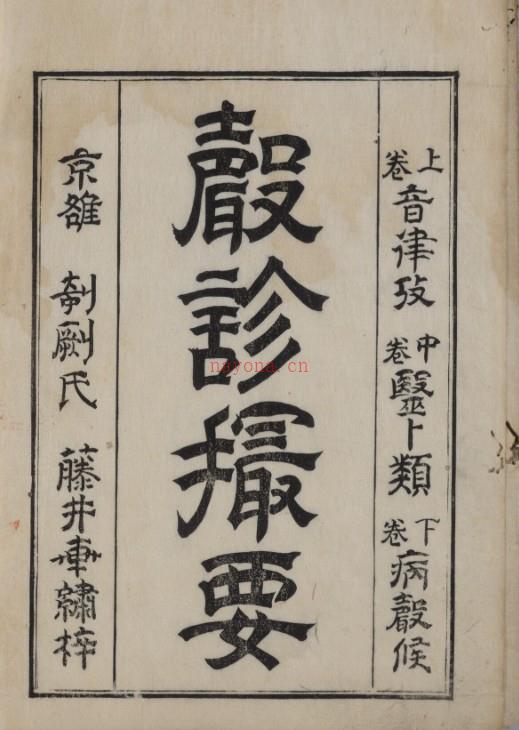 上卷音律攷 中卷毉卜類 下卷病聲候
聲診撮要
京雒 剞劂氏 藤井繡梓
nayona.cn